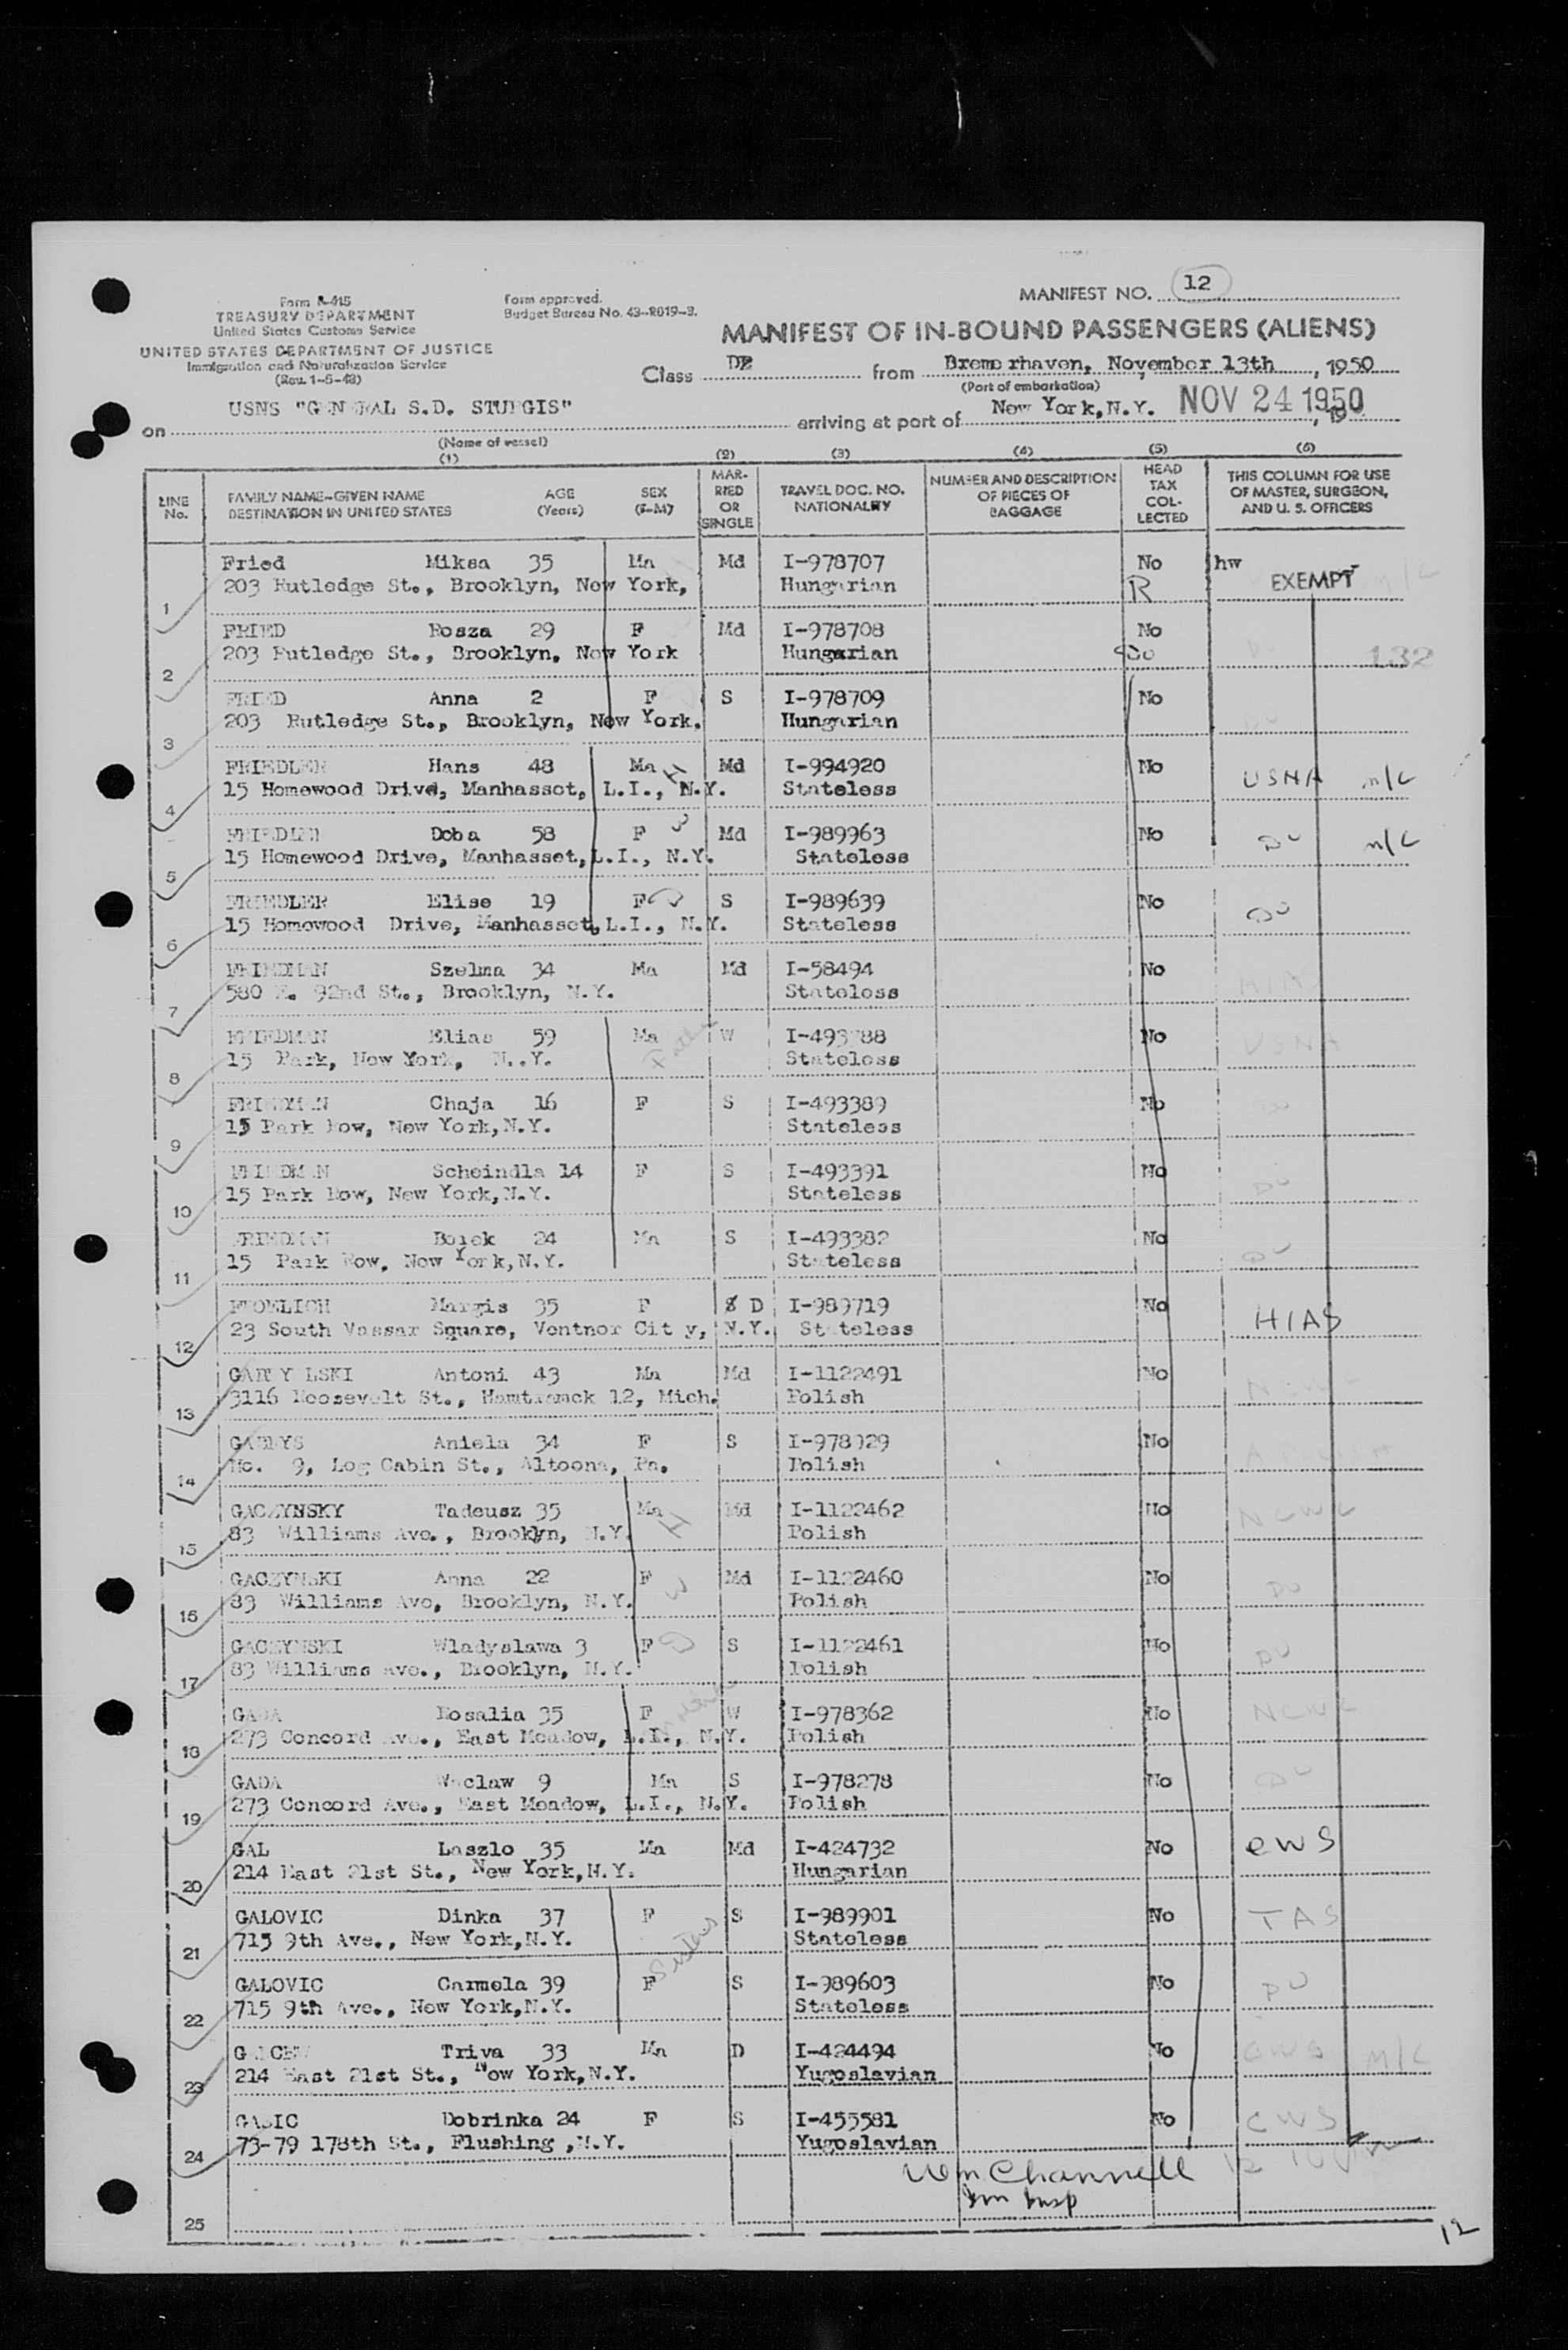 MANIFEST NO. 12
Form I-415
TREASURY DEPARTMENT
United States Customs Service
UNITED STATES DEPARTMENT OF JUSTICE
Immigration and Naturalization Service
(Rev. 1-5-48)
Form approved.
Budget Bureau No. 43-R019-3.
MANIFEST OF IN-BOUND PASSENGERS (ALIENS)
Class DP from Bremerhaven, November 13th, 1950
(Port of embarkation)
on USNS "GENERAL S.D. STURGIS" arriving at port of New York, N.Y. NOV 24 1950, 19
(Name of vessel)
(1) (2) (3) (4) (5) (6)
LINE No. FAMILY NAME-GIVEN NAME DESTINATION IN UNITED STATES AGE (Years) SEX (F-M) MARRIED OR SINGLE TRAVEL DOC. NO. NATIONALITY NUMBER AND DESCRIPTION OF PIECES OF BAGGAGE HEAD TAX COLLECTED THIS COLUMN FOR USE OF MASTER, SURGEON, AND U. S. OFFICERS
Fried Miksa 35 Ma Md I-978707 No hw
1 203 Rutledge St., Brooklyn, New York, Hungarian R EXEMPT n/c
FRIED Rosza 29 F Md I-978708 No
2 203 Rutledge St., Brooklyn, New York Hungarian Do 132
FRIED Anna 2 F S I-978709 No
3 203 Rutledge St., Brooklyn, New York. Hungarian
FRIEDLER Hans 48 Ma H Md I-994920 No USNA n/c
4 15 Homewood Drive, Manhasset, L.I., N.Y. Stateless
FRIEDLER Doba 58 F W Md I-989963 No Do n/c
5 15 Homewood Drive, Manhasset, L.I., N.Y. Stateless
FRIEDLER Elise 19 F D S I-989639 No Do
6 15 Homewood Drive, Manhasset, L.I., N.Y. Stateless
FRIEDMAN Szelma 34 Ma Md I-58494 No HIAS
7 580 E. 92nd St., Brooklyn, N.Y. Stateless
FRIEDMAN Elias 59 Ma Father W No USNA
8 15 Park, New York, N..Y. Stateless
FRIEDMAN Chaja 16 F S I-493389 No Do
9 15 Park Row, New York, N.Y. Stateless
FRIEDMAN Scheindla 14 F S I-493391 No Do
10 15 Park Row, New York, N.Y. Stateless
FRIEDMAN Borek 24 Ma S I-493382 No Do
11 15 Park Row, New York, N.Y. Stateless
FROELICH Margis 35 F S D I-989719 No HIAS
12 23 South Vassar Square, Ventnor City, N.Y. Stateless
Antoni 43 Ma Md I-1122491 No NCWC
13 3116 Roosevelt St., Hamtramck 12, Mich. Polish
GABRYS Aniela 34 F S I-978929 No
14 No. 9, Log Cabin St., Altoona, Pa. Polish
GACZYNSKY Tadeusz 35 Ma H Md I-1122462 No NCWC
15 83 Williams Ave., Brooklyn, N.Y. Polish
GACZYNSKI Anna 22 F W Md I-1122460 No Do
16 83 Williams Ave, Brooklyn, N.Y. Polish
GACZYNSKI Wladyslawa 3 F D S I-1122461 No Do
17 83 Williams Ave., Brooklyn, N.Y. Polish
GADA Rosalia 35 F Mother W I-978362 No NCWC
18 273 Concord Ave., East Meadow, L.I., N.Y. Polish
GADA Waclaw 9 Ma S I-978278 No Do
19 273 Concord Ave., East Meadow, L.I., N.Y. Polish
GAL Laszlo 35 Ma Md I-424732 No CWS
20 214 East 21st St., New York, N.Y. Hungarian
GALOVIC Dinka 37 F Sisters S I-989901 No TAS
21 715 9th Ave., New York, N.Y. Stateless
GALOVIC Carmela 39 F S I-989603 No Do
22 715 9th Ave., New York, N.Y. Stateless
Triva 33 Ma D I-424494 No CWS M/C
23 214 East 21st St., New York, N.Y. Yugoslavian
GASIC Dobrinka 24 F S I-455581 No CWS
24 73-79 178th St., Flushing, N.Y. Yugoslavian
Wm Channell
Imm Insp
25
12